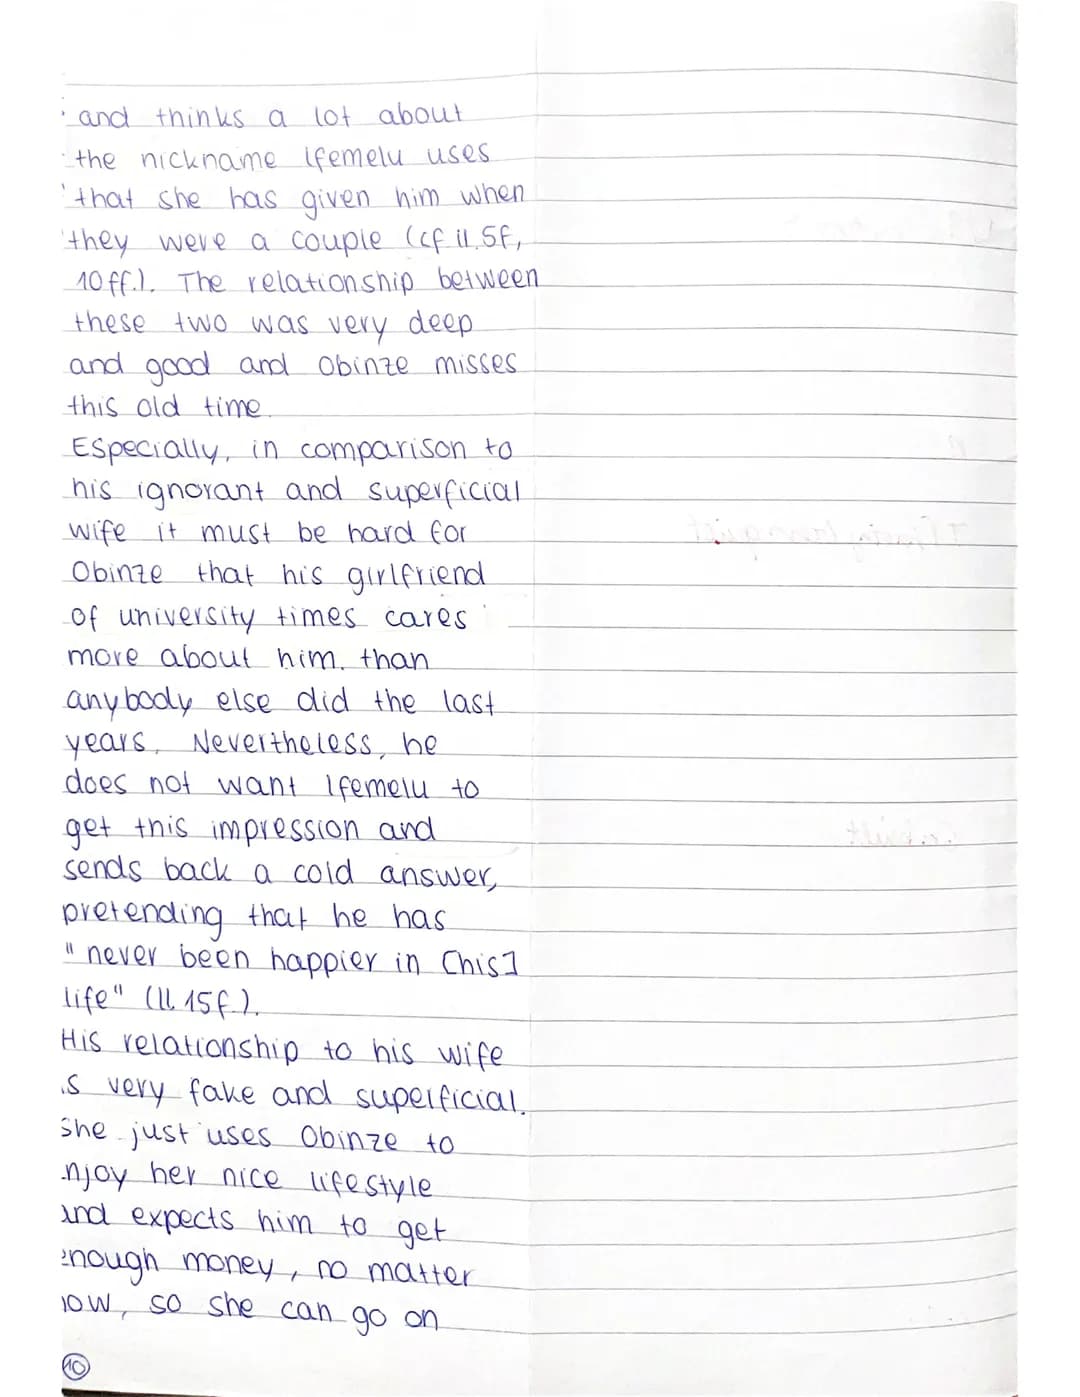 and thinks a lot about
the nickname Ifemelu uses
that she has given him when
they were a couple (cf ll. 5f,
10ff.). The relationship between
these two was very deep
and good and Obinze misses
this old time.
Especially, in comparison to
his ignorant and superficial
wife it must be hard for
Obinze that his girlfriend
of university times cares
more about him. than
anybody else did the last
years. Nevertheless, he
does not want Ifemelu to
get this impression and
sends back a cold answer,
pretending that he has
"never been happier in [his]
life" (ll. 15f.).
His relationship to his wife
is very fake and superficial.
She just uses Obinze to
enjoy her nice lifestyle
and expects him to get
enough money, no matter
how, so she can go on
10